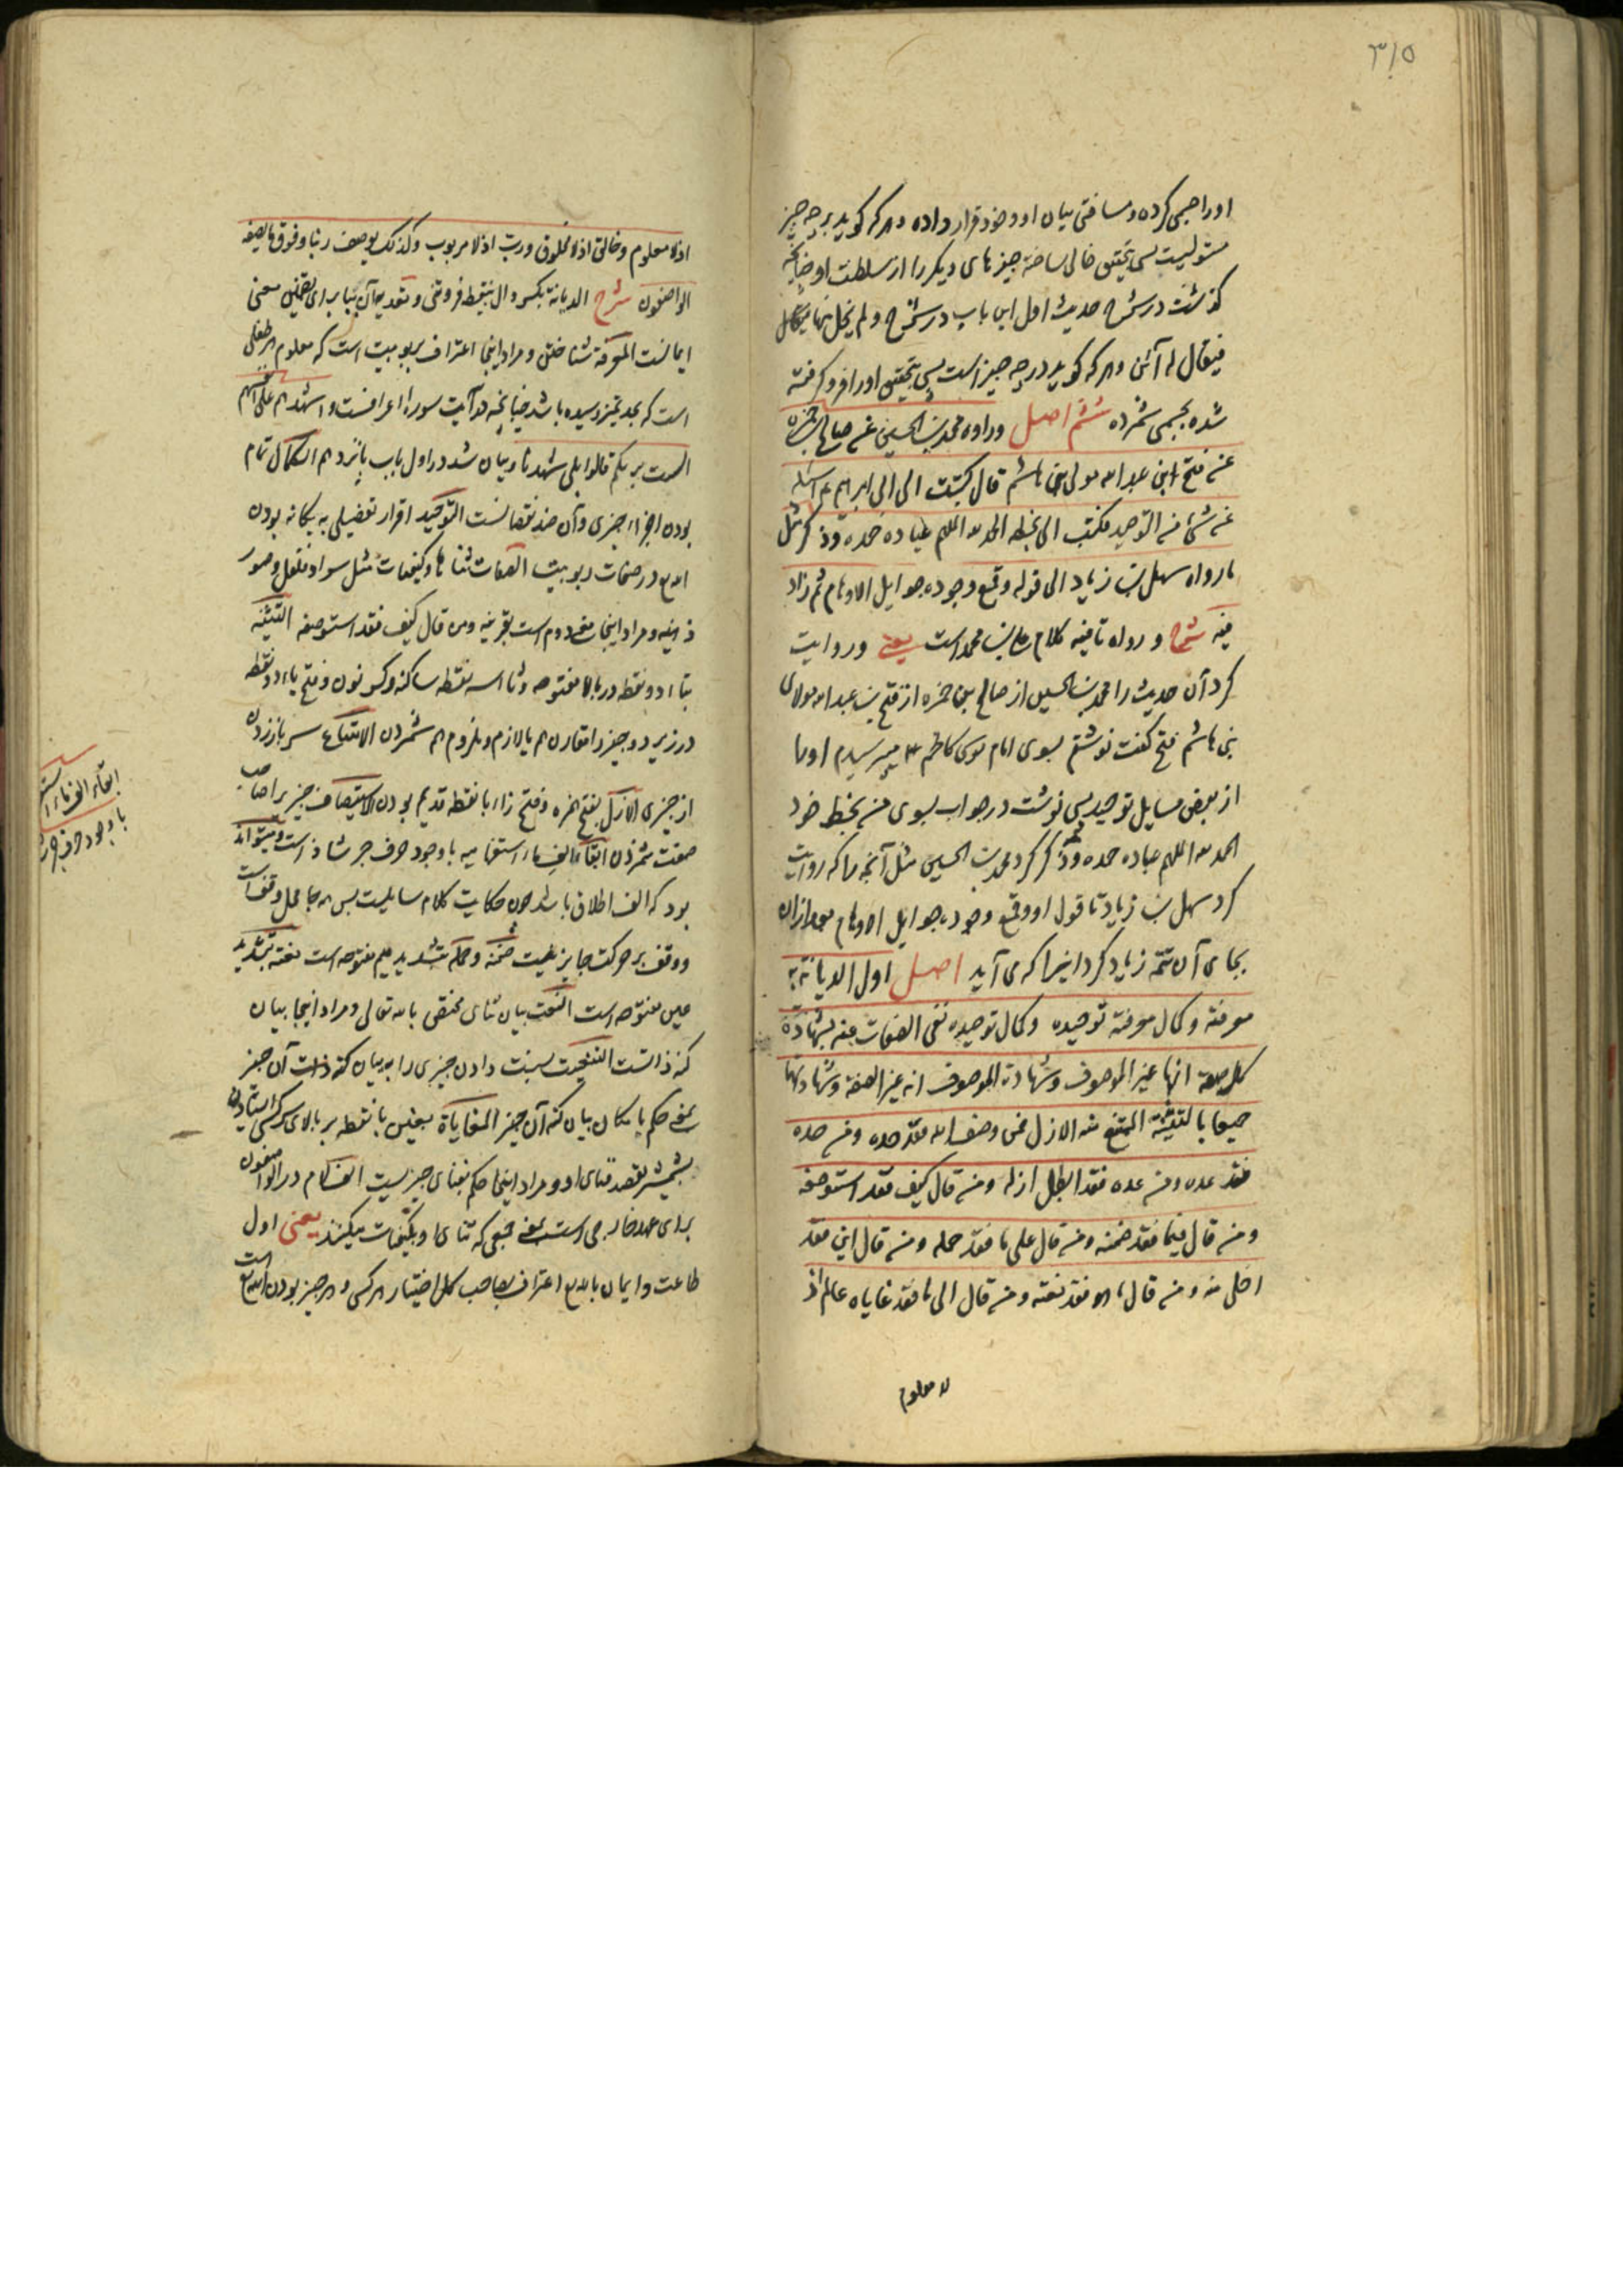 ۳۱۵
او را جسمی کرده و مسافتی میان او و خود قرار داده و هر که کوید بر چه چیز
مستولیست پس بتحقیق خالی ساخته چیزهای دیکر را از سلطنت او چنانچه
کذشت در شرح حدیث اول این باب در شرح و لم یخل منها
فیقال له این و هر که کوید در چه چیز است پس بتحقیق او را فرو کرفته
شده بجسمی شمرده ششم اصل و رواه محمد بن الحسین عن صالح بن حمزه
عن فتح ابن عبد الله مولی بنی هاشم قال کتبت الی ابی ابراهیم ع اسئله
عن شئ من التوحید فکتب الی بخطه الحمد لله الملهم عباده حمده و ذکر مثل
ما رواه سهل بن زیاد الی قوله و قمع وجوده جوایل الاوهام ثم زاد
فیه شرح و رواه تا فیه کلام علی بن محمد است یعنی و روایت
کرد آن حدیث را محمد بن الحسین از صالح بن حمزه از فتح بن عبد الله مولای
بنی هاشم فتح کفت نوشتم بسوی امام موسی کاظم ع میپرسیدم او را
از بعض مسایل توحید پس نوشت در جواب بسوی من بخط خود
الحمد لله الملهم عباده حمده و ذکر کرد محمد بن الحسین مثل آنچه را که روایت
کرد سهل بن زیاد تا قول او و قمع وجوده جوایل الاوهام بعد ازان
بجای آن تتمه زیاد کرد اینرا که می آید اصل اول الدیانة به
معرفته و کمال معرفته توحیده و کمال توحیده نفی الصفات عنه بشهادة
کل صفة انها غیر الموصوف و شهادة الموصوف انه غیر الصفة و شهادتهما
جمیعا بالتثنیه الممتنع منه الازل فمن وصف الله فقد حده و من حده
فقد عده و من عده فقد ابطل ازله و من قال کیف فقد استوصفه
و من قال فیما فقد ضمنه و من قال علی ما فقد حمله و من قال این فقد
اخلی منه و من قال ما هو فقد نعته و من قال الی ما فقد غایاه عالم اذ
لا معلوم
اذ لا معلوم و خالق اذ لا مخلوق و رب اذ لا مربوب و کذلک یوصف ربنا و فوق ما یصفه
الواصفون شرح الدیانة بکسر دال بینقطه فروتنی و تعدیه آن ببا برای تضمین معنی
ایمانست المعرفة شناختن و مراد اینجا اعتراف بربوبیت است که معلوم هر طفلی
است که بحد تمیز رسیده باشد چنانچه در آیت سوره اعرافست و اشهدهم علی انفسهم
الست بربکم قالوا بلی شهدنا و بیان شد در اول باب پانزدهم الکمال تمام
بودن اجزاء چیزی و آن ضد نقصانست التوحید اقرار تفصیلی به یکانه بودن
الله در صفات ربوبیت الصفات ثناها و کیفیات مثل سواد و تعقل و صور
ذهنیه و مراد اینجا معنی دوم است بقرینه و من قال کیف فقد استوصفه التثنیه
بتاء دو نقطه در بالا مفتوحه و ثاء سه نقطه ساکنه و کسر نون و فتح یاء دو نقطه
در زیر دو چیز را مقارن هم یا لازم و ملزوم هم شمردن الامتناع سر باز زدن
از چیزی الازل بفتح همزه و فتح زاء با نقطه قدیم بودن الاستیصاف چیزیرا صاحب
صفت شمردن ابقاء الف ما استفهامیه با وجود حرف جر شاذ است و میتواند
بود که الف اطلاق باشد چون حکایت کلام سایلست پس هر جا محل وقف است
و وقف بر حرکت جایز نیست ضمنه و حمله بتشدید میم مفتوحه است نعته بتشدید
عین مفتوحه است النعت بیان ثنای مختص بالله تعالی و مراد اینجا بیان
کنه ذاتست التنعیت نسبت دادن چیزی را به بیان کنه ذات آن چیز
یعنی حکم بامکان بیان کنه آن چیز المغایاة بغین با نقطه بر بالای سر کسی ایستادن
بشمشیر بقصد فنای او و مراد اینجا حکم بفنای چیزیست الف لام در الواصفون
برای عهد خارجی است یعنی جمعی که ثنای او بکیفیات میکنند یعنی اول
طاعت و ایمان بالله اعتراف بصاحب کل اختیار هر کس و هر چیز بودن الله است
ابقاء الف ماء
با وجود حرف جر